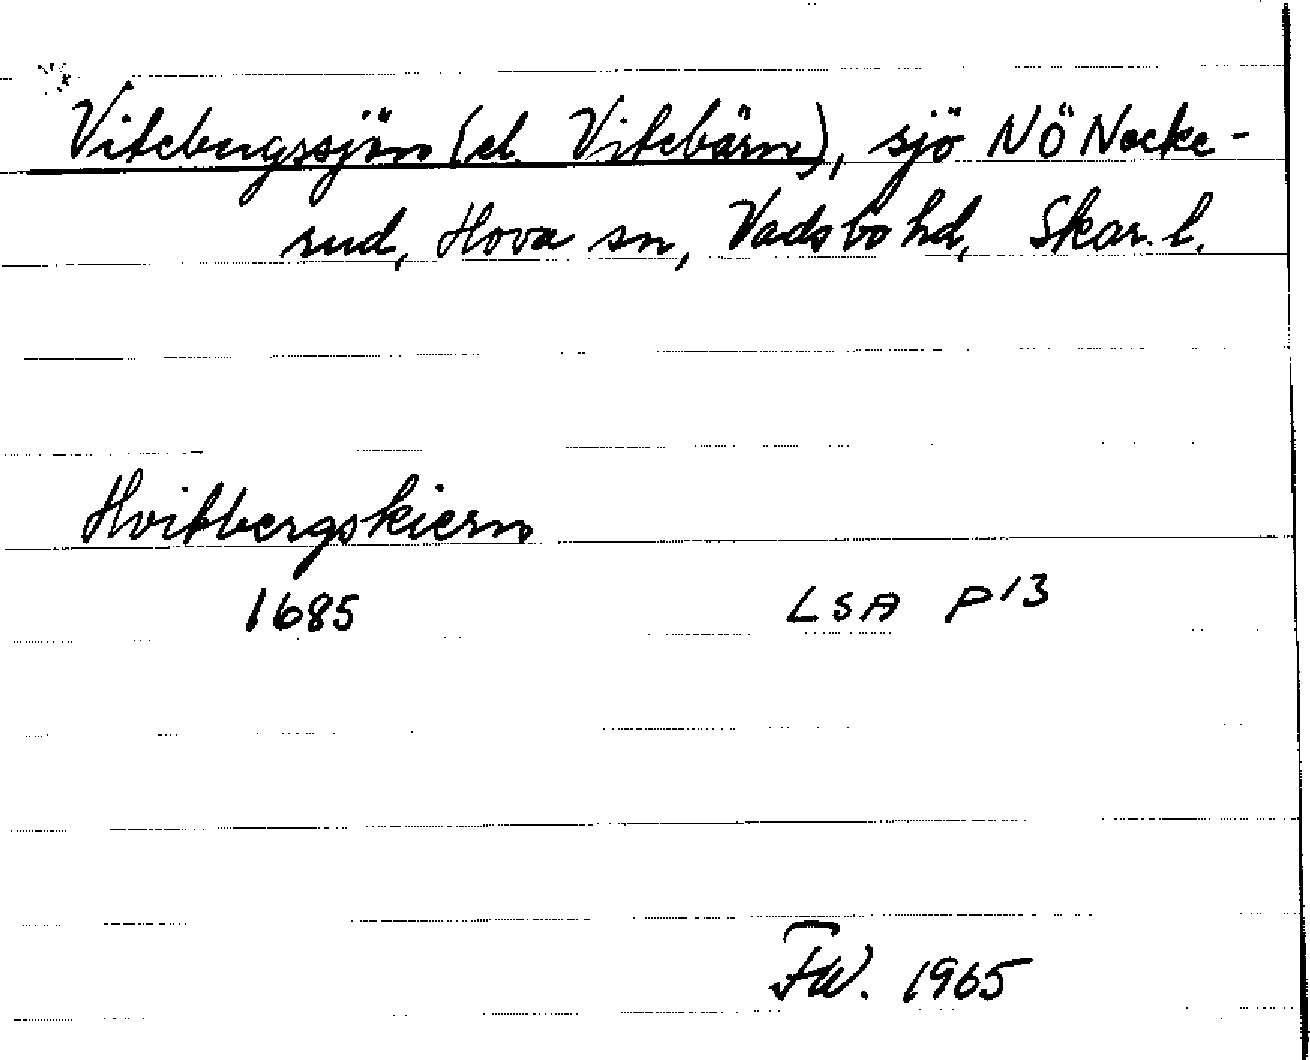 Vitebergssjön (el. Vitebärn), sjö NÖ Necke-
rud, Hova sn, Vadsbo hd, Skar. l.
Hvitbergskiern
1685 LSA P13
FW. 1965